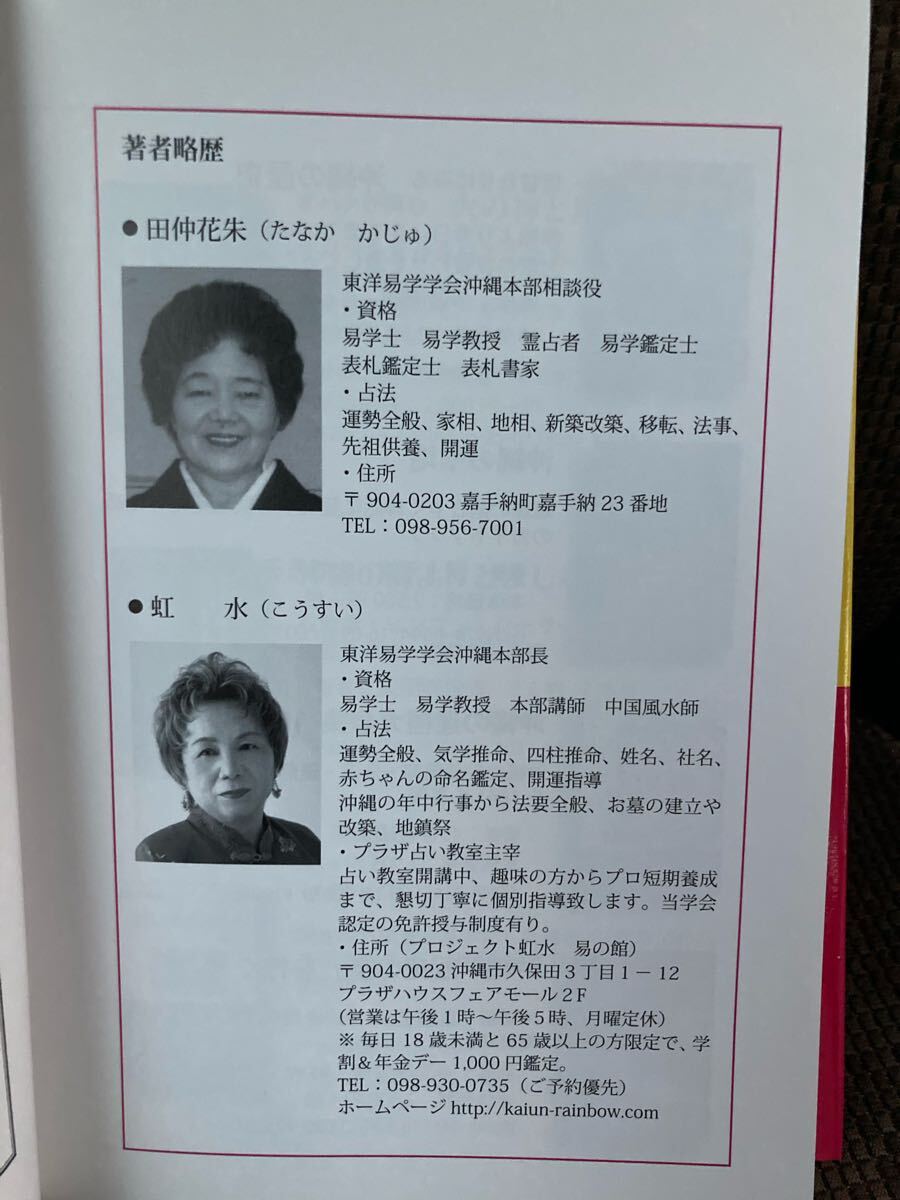 著者略歴
●田仲花朱（たなか　かじゅ）
東洋易学学会沖縄本部相談役
・資格
易学士　易学教授　霊占者　易学鑑定士
表札鑑定士　表札書家
・占法
運勢全般、家相、地相、新築改築、移転、法事、
先祖供養、開運
・住所
〒904-0203 嘉手納町嘉手納 23 番地
TEL：098-956-7001
●虹　　水（こうすい）
東洋易学学会沖縄本部長
・資格
易学士　易学教授　本部講師　中国風水師
・占法
運勢全般、気学推命、四柱推命、姓名、社名、
赤ちゃんの命名鑑定、開運指導
沖縄の年中行事から法要全般、お墓の建立や
改築、地鎮祭
・プラザ占い教室主宰
占い教室開講中、趣味の方からプロ短期養成
まで、懇切丁寧に個別指導致します。当学会
認定の免許授与制度有り。
・住所（プロジェクト虹水　易の館）
〒904-0023 沖縄市久保田３丁目１－12
プラザハウスフェアモール２F
（営業は午後１時～午後５時、月曜定休）
※ 毎日 18 歳未満と 65 歳以上の方限定で、学
割＆年金デー 1,000 円鑑定。
TEL：098-930-0735（ご予約優先）
ホームページ http://kaiun-rainbow.com